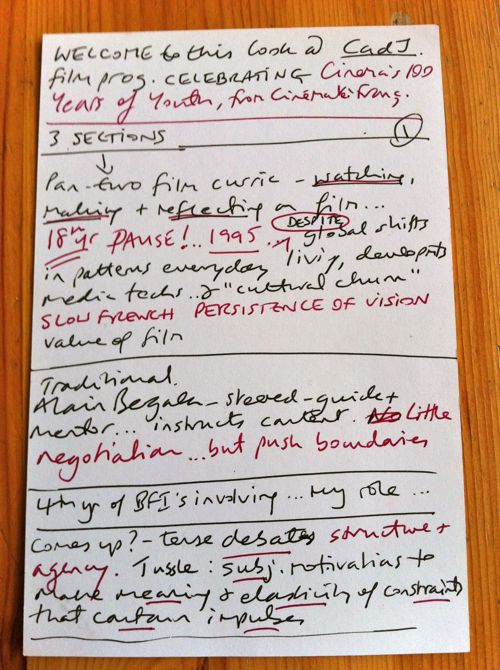 WELCOME to this look @ CadJ.
film prog. CELEBRATING Cinema's 100
Years of Youth, from Cinémathèque Franç.
3 SECTIONS
1
Pan-two film curric - watching,
making + reflecting on film...
18th yr PAUSE!.. 1995.. DESPITE global shifts
in patterns everyday living, developmts
media techs.. & "cultural churn"
SLOW FRENCH PERSISTENCE OF VISION
value of film
Traditional.
Alain Bergala - steered - guide +
mentor... instructs content. Little
negotiation... but push boundaries
4th yr of BFI's involving... my role...
Comes up? - tense debates structure +
agency. Tussle: subj. motivations to
make meaning & elasticity of constraints
that contain impulses